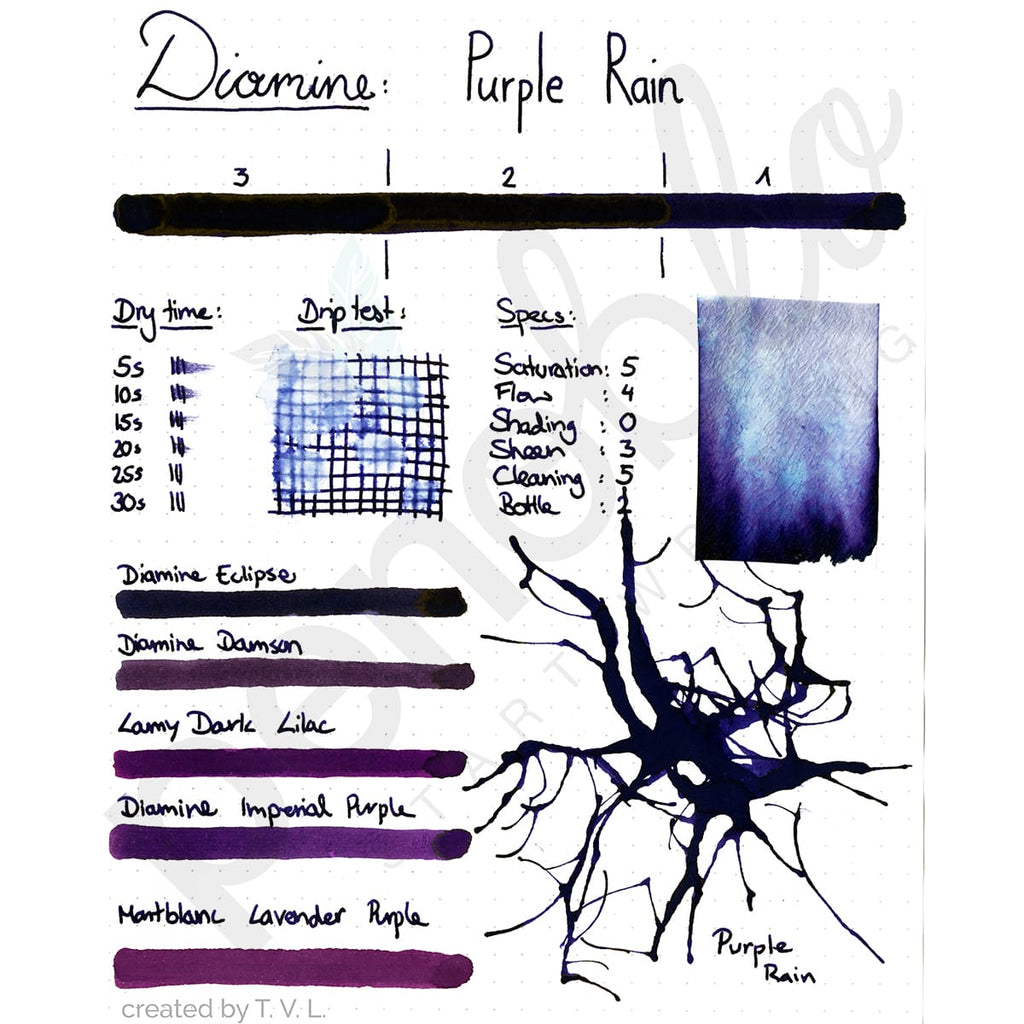 Diamine: Purple Rain
3 2 1
Dry time:
5s
10s
15s
20s
25s
30s
Drip test:
Specs:
Saturation: 5
Flow : 4
Shading : 0
Sheen : 3
Cleaning : 5
Bottle : 2
Diamine Eclipse
Diamine Damson
Lamy Dark Lilac
Diamine Imperial Purple
Montblanc Lavender Purple
Purple
Rain
created by T. V. L.
penoblo